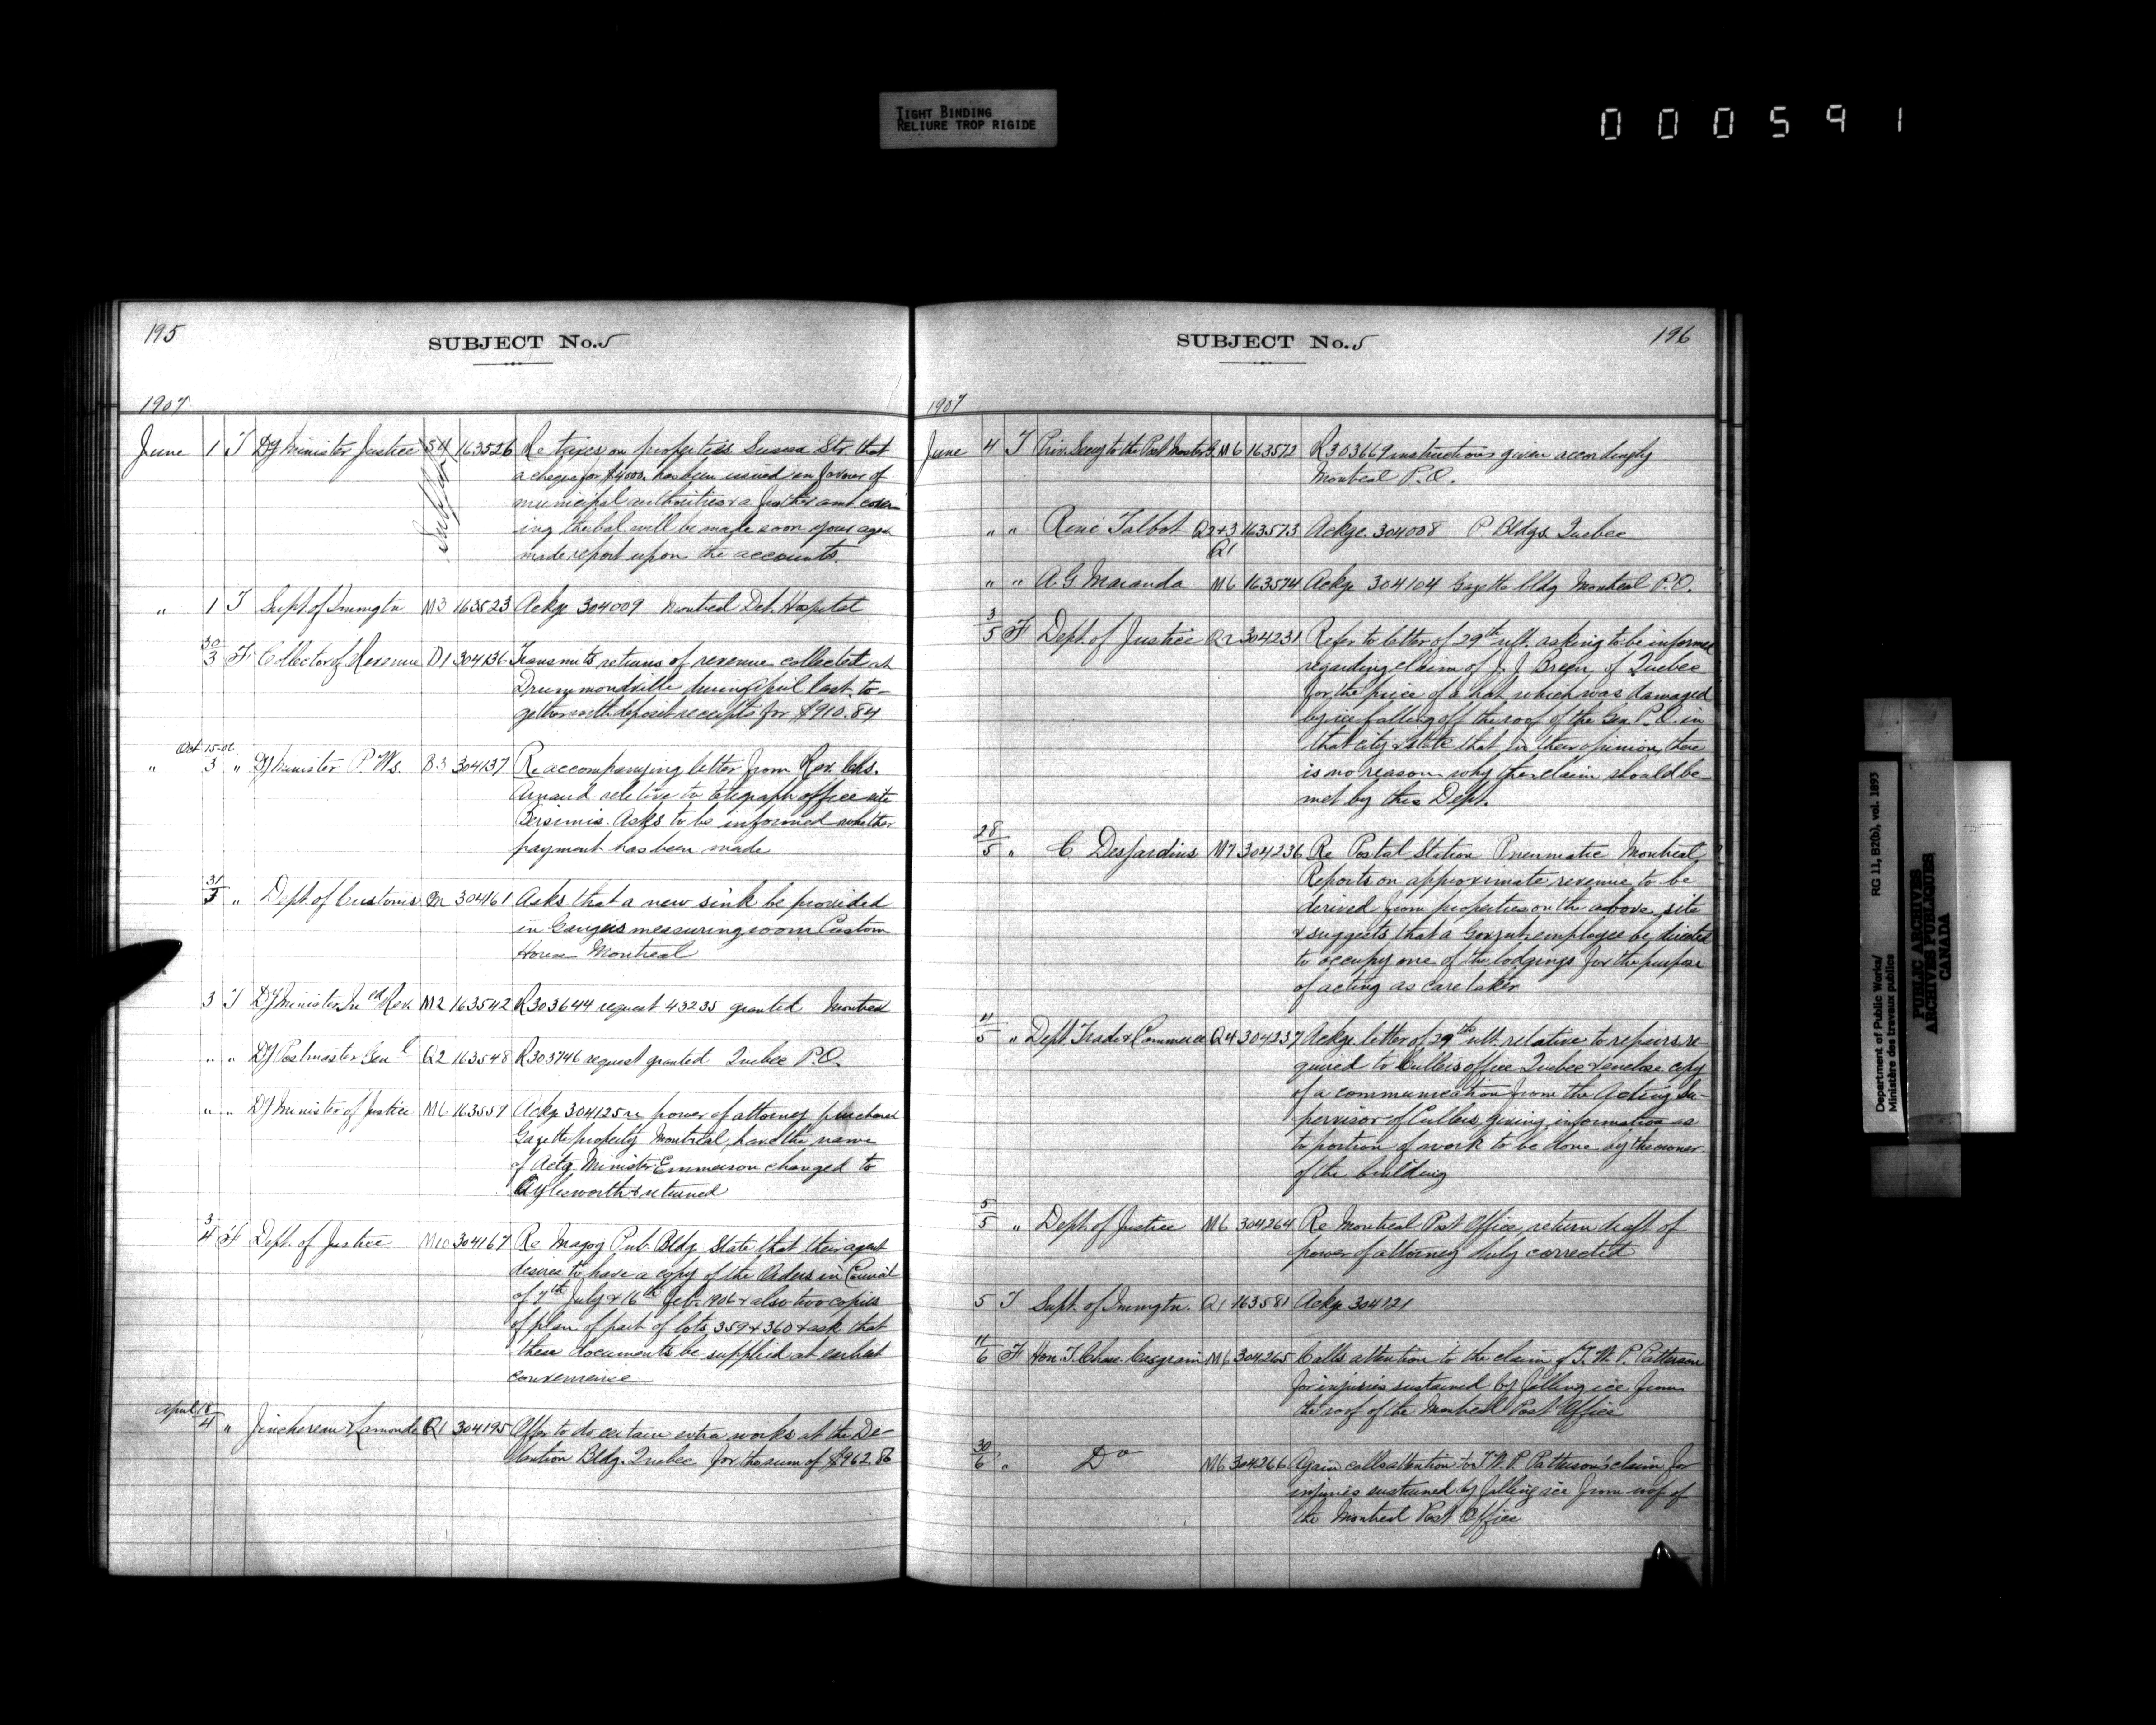 TIGHT BINDING
RELIURE TROP RIGIDE
000591
195
SUBJECT No. 5
1907
June 1 T Dy Minister Justice S4 163526 Re taxes on properties Sussex Str. that
a cheque for $4000. has been issued in favour of
municipal authorities & a further amt cover-
ing the bal. will be made soon your agen
made report upon the accounts.
" 1 T Supt. of Immgtn M3 163523 Ackge 304009 Montreal Det. Hospital
30/3 F Collector of Revenue D1 304136 Transmits returns of revenue collected at
Drummondville during April last, to-
gether with deposit receipts for $910.84
Oct 15-06
" 3 " Dy Minister P. Ws. B3 304137 Re accompanying letter from Rev. Chs.
Arnaud relative to telegraph office site
Bersimis. Asks to be informed whether
payment has been made
31/3 " Dept. of Customs 304161 Asks that a new sink be provided
in Gaugers measuring room Custom
House Montreal
3 T Dy Minister Inld Rev. M2 163542 R303644 request 43235 granted Montreal
" " Dy Postmaster Genl Q2 163548 R303746 request granted Quebec P.O.
" " Dy Minister of Justice M6 163557 Ackge 304125 re power of attorney purchase
Gazette property Montreal, have the name
of Actg. Minister Emmerson changed to
Aylesworth & returned
3/4 F Dept. of Justice M10 304167 Re Magog Pub. Bldg State that their agent
desires to have a copy of the Orders in Council
of 7th July & 16th Feb. 1906 & also two copies
of plan of part of lots 359 & 360 & ask that
these documents be supplied at earliest
convenience
April 18/4 " Jinchereau & Lamonde Q1 304195 Offer to do certain extra works at the De-
tention Bldg. Quebec for the sum of $962.86
SUBJECT No. 5
196
1907
June 4 T Priv. Secy to the Post Master G. M6 163572 R303669 instructions given accordingly
Montreal P.O.
" " René Talbot Q2+3 163573 Ackge. 304008 P Bldgs. Quebec
Q1
" " A. G. Maranda M6 163574 Ackge 304104 Gazette bldg Montreal P.O.
3/5 F Dept. of Justice Q2 304231 Refer to letter of 29th ult. asking to be informed
regarding claim of J. J. Breen, of Quebec
for the price of a hat which was damaged
by ice falling off the roof of the Gen. P.O. in
that city & state that in their opinion, there
is no reason why the claim should be
met by this Dept.
28/5 " C. Desjardins M7 304236 Re Postal Station Pneumatic Montreal
Reports on approximate revenue to be
derived from properties on the above site
& suggests that a Govmt employee be directed
to occupy one of the lodgings for the purpose
of acting as care taker
4/5 " Dept. Trade & Commerce Q4 304237 Ackge. letter of 29th ult. relative to repairs re-
quired to Cullers office Quebec & enclose copy
of a communication from the Acting Su-
pervisor of Cullers giving information as
to portion of work to be done by the owner
of the building
5/5 " Dept. of Justice M6 304264 Re Montreal Post Office, return draft of
power of attorney duly corrected
5 T Supt. of Immgtn. Q1 163581 Ackge 304121
11/6 F Hon. T. Chase Casgrain M6 304265 Calls attention to the claim of T. W. P. Patterson
for injuries sustained by falling ice from
the roof of the Montreal Post Office
30/6 " Do M6 304266 Again calls attention to T. W. P. Patterson's claim for
injuries sustained by falling ice from roof of
the Montreal Post Office
Department of Public Works/ RG 11, B2(b), vol. 1893
Ministère des travaux publics
PUBLIC ARCHIVES
ARCHIVES PUBLIQUES
CANADA